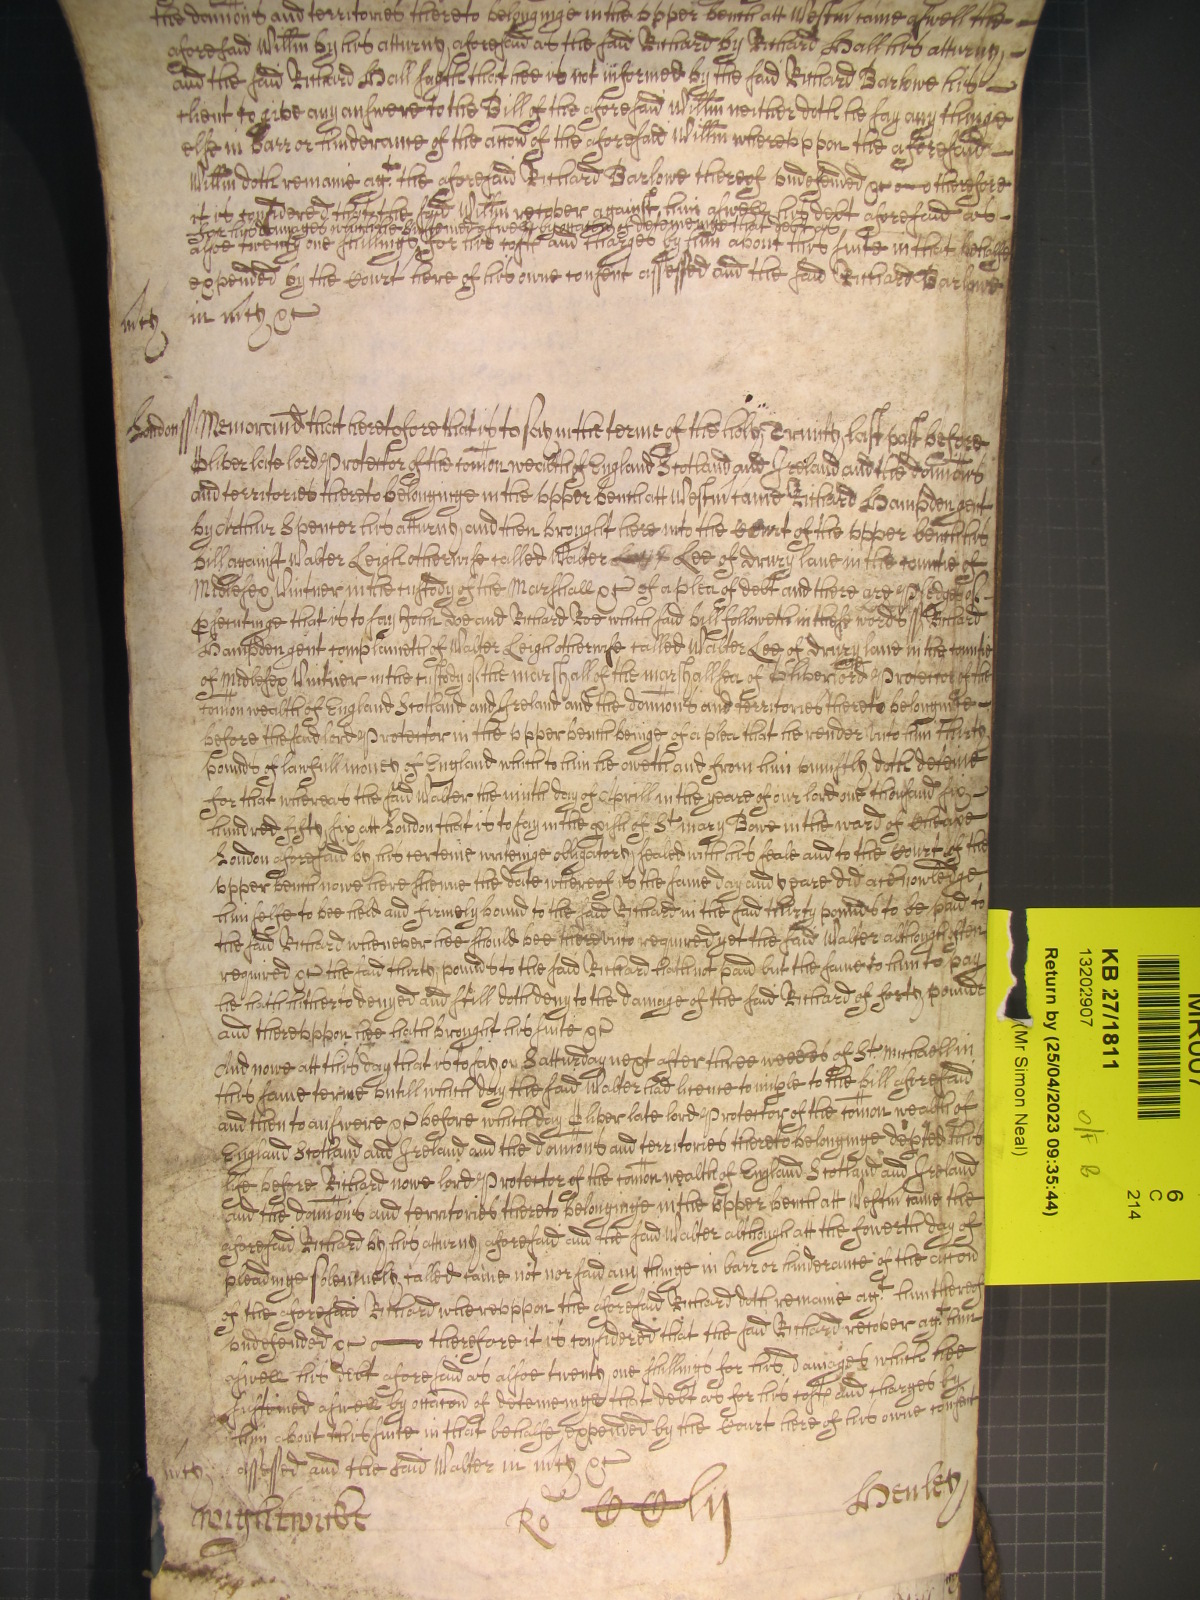 the dominions and territories thereto belonginge in the Upper bench att Westm came aswell the
aforesaid Willm by his atturny aforesaid as the said Richard by Richard Hall his atturny
and the said Richard Hall sayth that hee is not informed by the said Richard Barlowe his
client to give any answere to the Bill of the aforesaid Willm neither doth he say any thinge
else in Barr or hinderance of the accon of the aforesaid Willm whereuppon the aforesaid
Willm doth remaine agt the aforesaid Richard Barlowe thereof undefended &c therefore
it is considered that the said Willm recover against him aswell his debt aforesaid as
for his damages which he susteyned aswell by occacon of deteineinge that debt as
alsoe twenty one shillings for his costs and charges by him about his suite in that behalfe
expended by the Court here of his owne consent assessed and the said Richard Barlowe
mcy in mcy &c
London ss Memorand that heretofore that is to say in the terme of the holy Trinity last past before
Oliver late lord Protector of the comon wealth of England Scotland and Ireland and the dominions
and territories thereto belonginge in the upper bench att Westm came Richard Hampden gent
by Arthur Spencer his atturny and then brought here into the Court of the upper bench his
bill against Walter Leigh otherwise called Walter Lee of drury lane in the countie of
Midlesex Vintner in the custody of the Marshall &c of a plea of debt and there are pledges of
psecutinge that is to say John Doe and Richard Roe which said bill followeth in these words ss Richard
Hampden gent complaineth of Walter Leigh otherwise called Walter Lee of drury lane in the countie
of Midlesex Vintner in the custody of the marshall of the marshallsea of Oliver lord Protector of the
comon wealth of England Scotland and Ireland and the dominions and territories thereto belonginge
before the said lord Protector in the upper bench beinge of a plea that he render unto him thirty
pounds of lawfull money of England which to him he oweth and from him uniustly doth deteine
for that whereas the said Walter the ninth day of Aprill in the yeare of our lord one thousand six
hundred fifty six att London that is to say in the pish of St mary Bowe in the ward of Cheape
London aforesaid by his certeine writeinge obligatory sealed with his seale and to the Court of the
upper bench nowe here shewne the date whereof is the same day and yeare did acknowledge
him selfe to bee held and firmely bound to the said Richard in the said thirty pounds to be paid to
the said Richard whenever hee should bee thereunto required yet the said Walter although often
required &c the said thirty pounds to the said Richard hath not paid but the same to him to pay
he hath hitherto denyed and still doth deny to the damage of the said Richard of forty pounds
and thereuppon hee hath brought his suite &c
And nowe att this day that is to say on Satturday next after three weekes of St Michaell in
this same terme untill which day the said Walter had licence to imple to the bill aforesaid
and then to answere &c before which day Oliver late lord Protector of the comon wealth of
England Scotland and Ireland and the dominions and territories thereto belonginge depted this
life before Richard nowe lord Protector of the comon wealth of England Scotland and Ireland
and the dominions and territories thereto belonginge in the upper bench att Westm came the
aforesaid Richard by his atturny aforesaid and the said Walter although att the fowerth day of
pleadinge solemnely called came not nor said any thinge in barr or hinderance of the accon
of the aforesaid Richard whereuppon the aforesaid Richard doth remaine agt him thereof
undefended &c therefore it is considered that the said Richard recover agt him
aswell his debt aforesaid as alsoe twenty one shillings for his damages which hee
susteined aswell by occacon of deteineinge that debt as for his costs and charges by
him about this suite in that behalfe expended by the Court here of his owne consent
mcy assessed and the said Walter in mcy &c
Wightwicke Ro CClij Henley
KB 27/1811
13202907
Return by (25/04/2023 09:35:44)
(Mr Simon Neal)
MR007
6
C
214